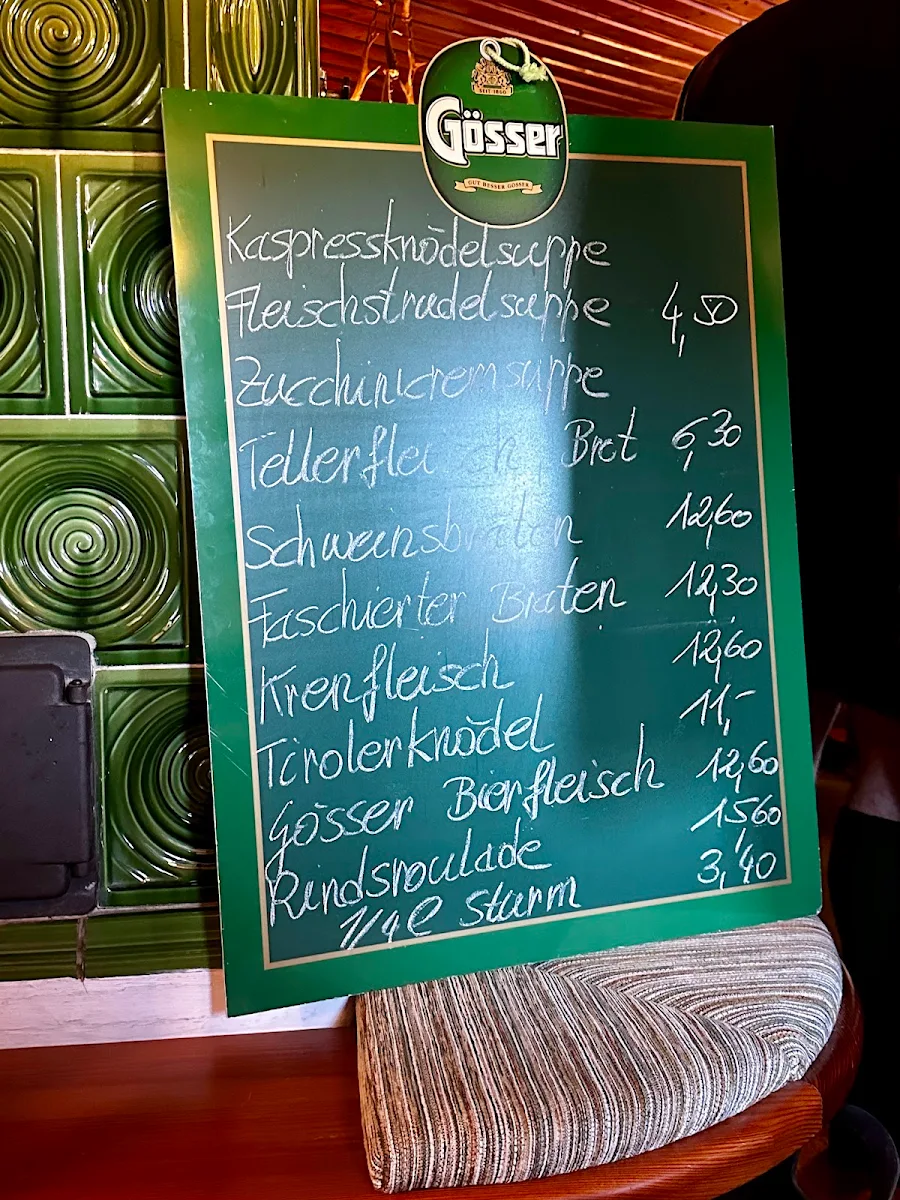 SEIT 1860
Gösser
GUT BESSER GÖSSER
Kaspressknödelsuppe
Fleischstrudelsuppe 4,50
Zucchinicremsuppe
Tellerfleisch Brot 6,30
Schweinsbraten 12,60
Faschierter Braten 12,30
Krenfleisch 12,60
Tirolerknödel 11,-
Gösser Bierfleisch 12,60
Rindsroulade 15,60
1/4 l Sturm 3,40